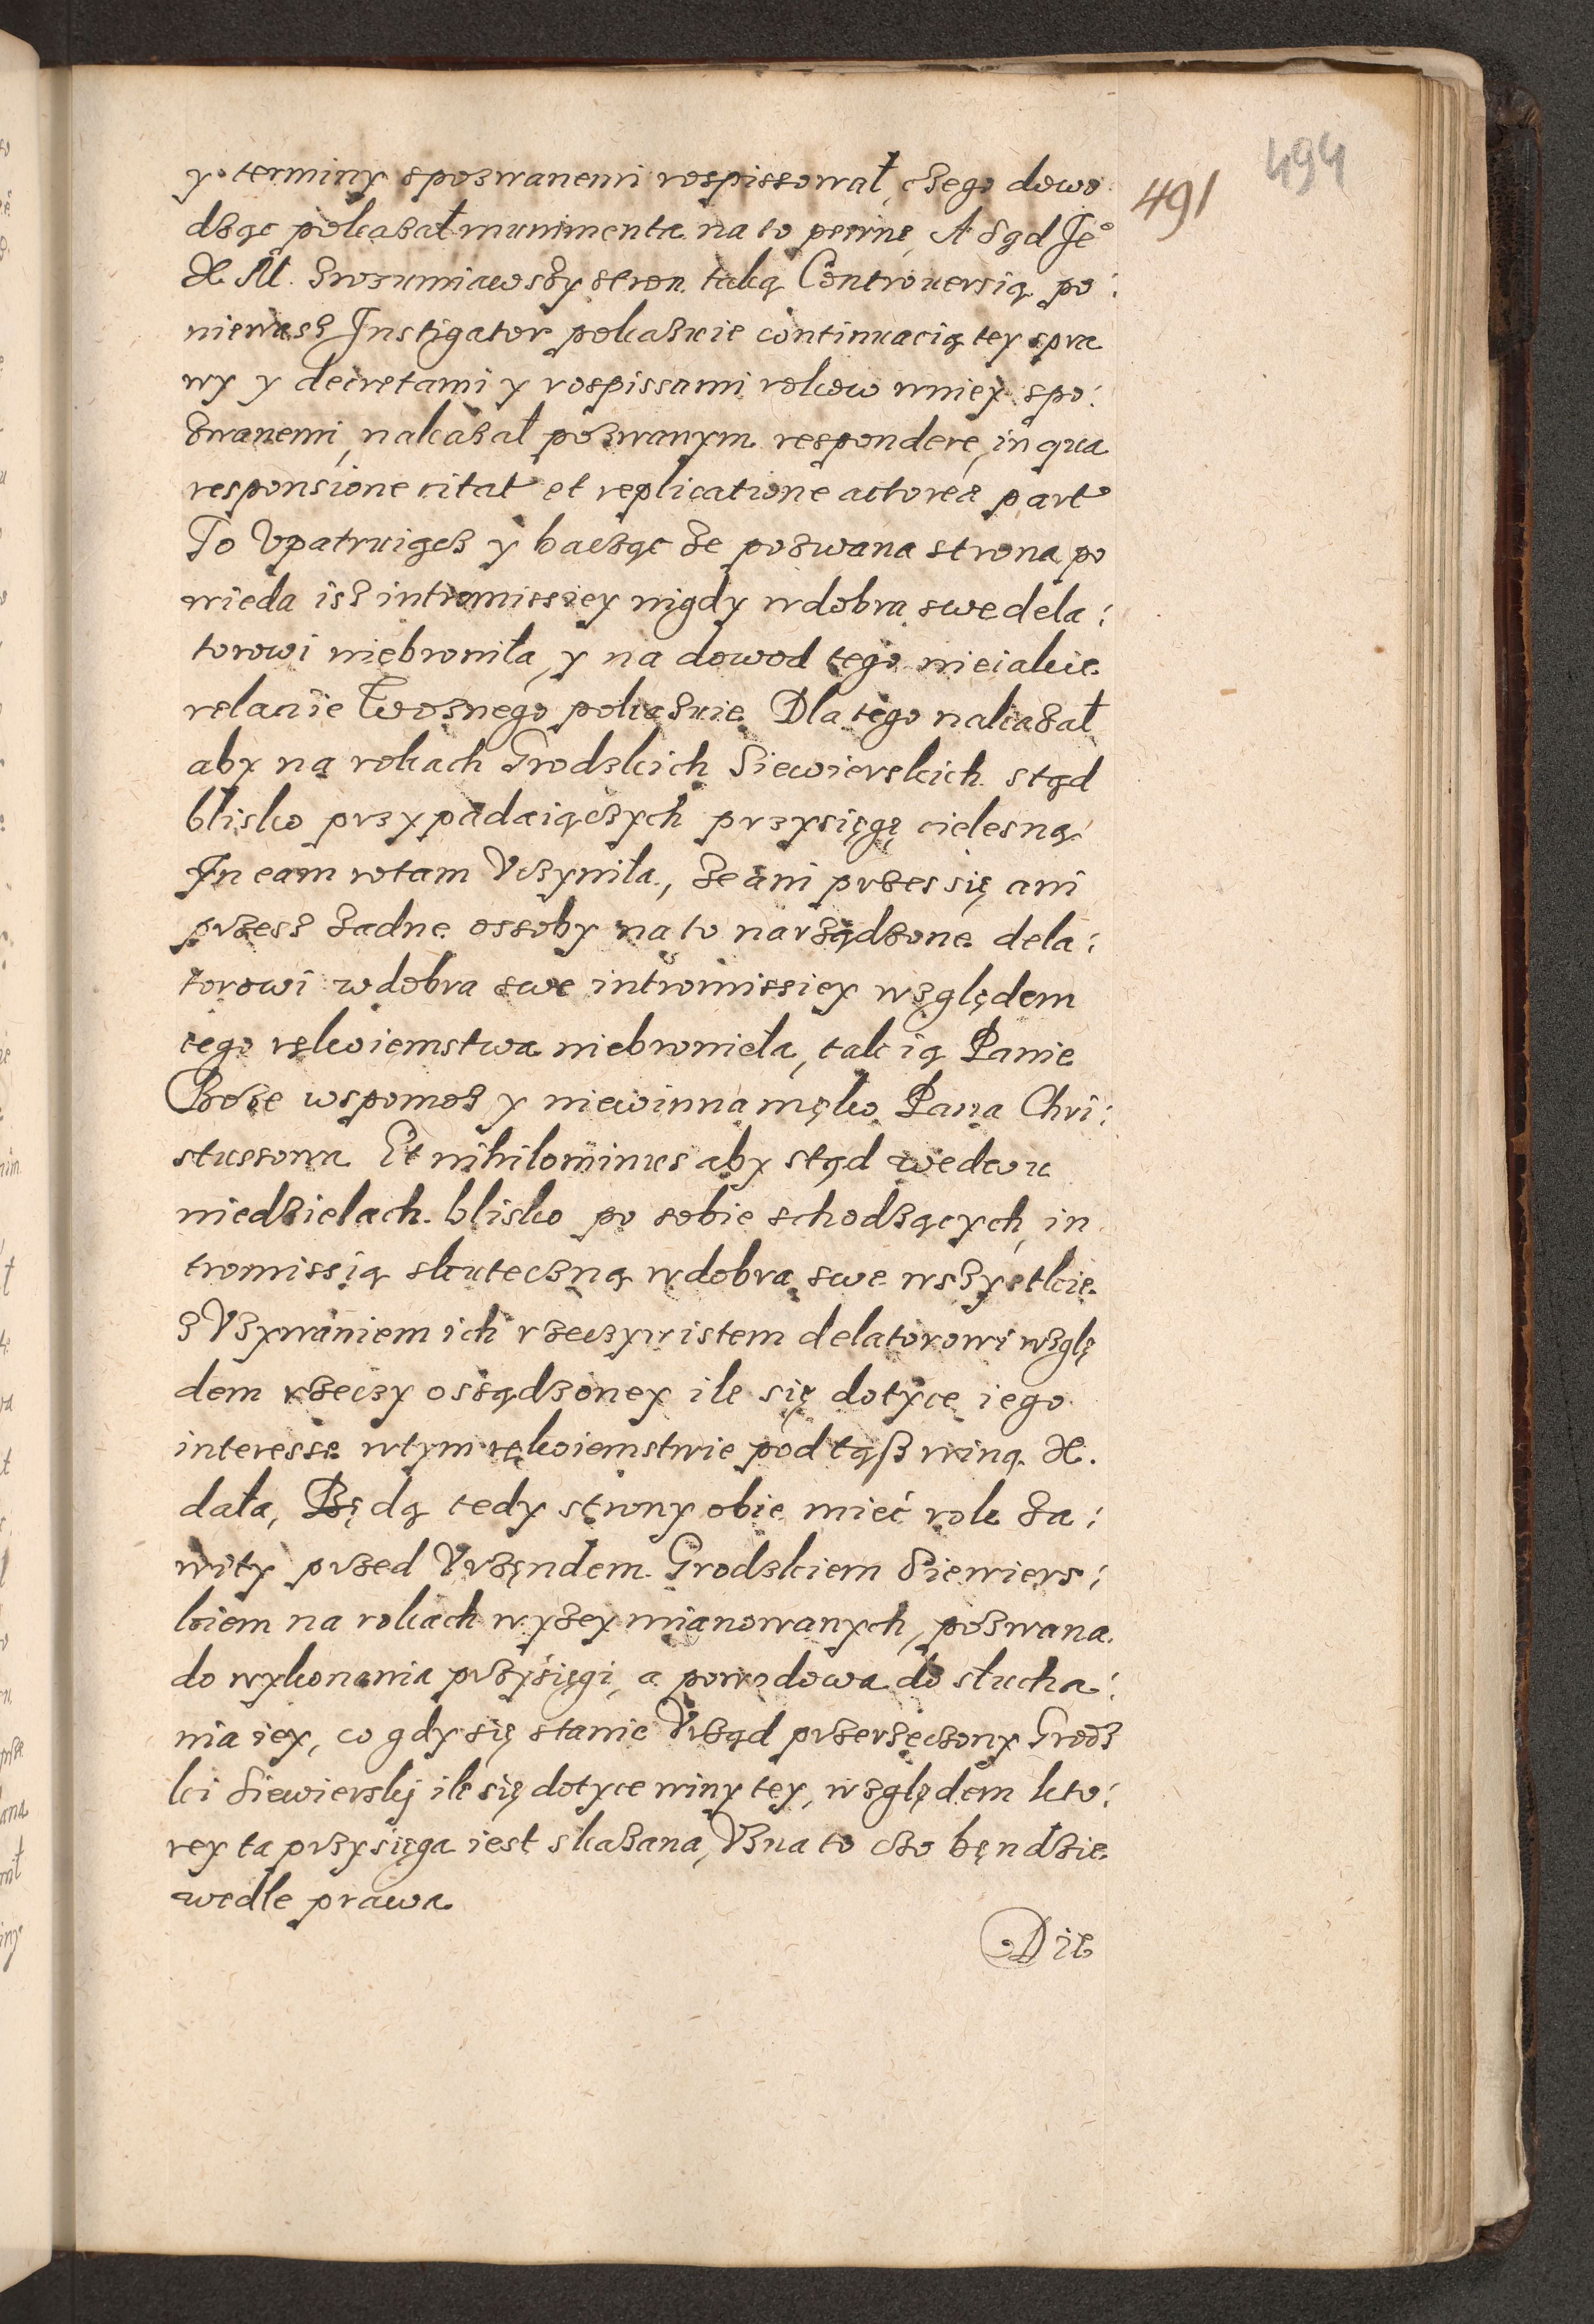 494
491
y terminy spozwanemi rospissował, czego dowo
dząc pokazał munimenta na to pewne, A Sąd Je°
X. M. zrozumiawszy stron taką Controuersią po:
niewasz Instigator pokazuie continuacią tey spra
wy y decretami y rospissami rokow wniey spo:
zwanemi, nakazał pozwanym respondere, in qua
responsione citat et replicatione actorea part
To Vpatruiącz y bacząc że pozwana strona po
wieda isz intromissiey nigdy wdobra swe dela:
torowi niebroniła, y na dowod tego nieiakie
relacie Woznego pokazuie. Dla tego nakazał
aby na rokach Grodzkich Siewierskich stąd
blisko przypadaiączych przysięgę cielesną
In eam rotam Vczyniła, że ani przes się ani
przesz żadne ossoby na to narządzone dela:
torowi w dobra swe intromissiey względem
tego rękoiemstwa niebronieła, tak ią Panie
Boże wspomoz y niewinna męko Pana Chri:
stussowa Et nihilominus aby stąd wedwu
niedzielach blisko po sobie schodzących, in
tromissią skuteczną wdobra swe wszystkie
z Vzywaniem ich rzeczywistem delatorowi wzglę
dem rzeczy ossądzoney ile się dotyce iego
interesse wtym rękoiemstwie pod tąsz winą X.
dała, Będą tedy strony obie mieć rok za:
wity przed Vrzęndem Grodzkiem Siewiers:
kiem na rokach wyzey mianowanych, pozwana
do wykonania przysięgi, a powodowa do słucha:
nia iey, co gdy się stanie Vrząd przerzeczony Grodz
ki Siewierskj ile się dotyce winy tey, względem kto:
rey ta przysięga iest skazana, Vzna to czo będzie
wedle prawa
Die